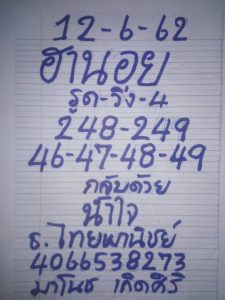 12-6-62
ฮานอย
รูด-วิ่ง-4
248-249
46-47-48-49
กลับด้วย
น้ำใจ
ธ.ไทยพานิชย์
4066538273
มาโนช เกิดศิริ